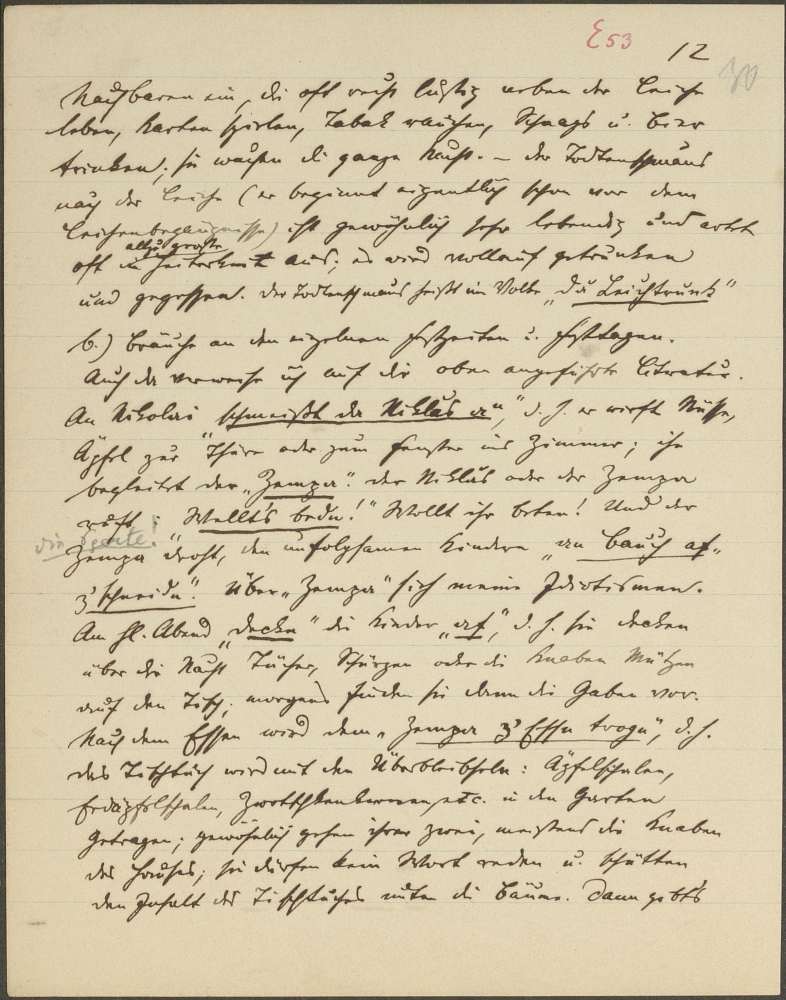 E53 12
30
Nachbaren ein, die oft recht lustig neben der Leiche
leben, Karten spielen, Tabak rauchen, Schnaps u. Bier
trinken; sie wachen die ganze Nacht. – Der Todtenschmaus
nach der Leiche (er beginnt eigentlich schon vor dem
Leichenbegängnisse) ist gewöhnlich sehr lebendig und artet
allzugroße
oft in Heiterkeit aus; es wird vollauf getrunken
und gegessen. Der Todtenschmaus heißt im Volke „Du Leichtrunk"
b.) Bräuche an den einzelnen Festzeiten u. Festtagen.
Auch da verweise ich auf die oben angeführte Literatur.
An Nikolai „schmeißt der Niklas ei", d. h. er wirft Nüsse,
Äpfel zur Thüre oder zum Fenster ins Zimmer; ihn
begleitet der „Zempa". Der Niklas oder der Zempa
ruft: „Wellt's bedn!" Wollt ihr beten! Und der
Zempa droht, den unfolgsamen Kindern „in Bauch af-
z'schneidn". Über „Zempa" sieh meine Idiotismen.
Am hl. Abend „deckn" die Kinder „af", d. h. sie decken
über die Nacht Tücher, Schürzen oder die Knaben Mützen
auf den Tisch; morgens finden sie dann die Gaben vor.
Nach dem Essen wird dem „Zempa z'Essn trogn", d. h.
das Tischtuch wird mit den Überbleibseln: Äpfelschalen,
Erdäpfelschalen, Zwetschkenkernen, etc. in den Garten
getragen; gewöhnlich gehen ihrer zwei, meistens die Knaben
des Hauses; sie dürfen kein Wort reden u. schütten
den Inhalt des Tischtuches unter die Bäume. Dann gebt's